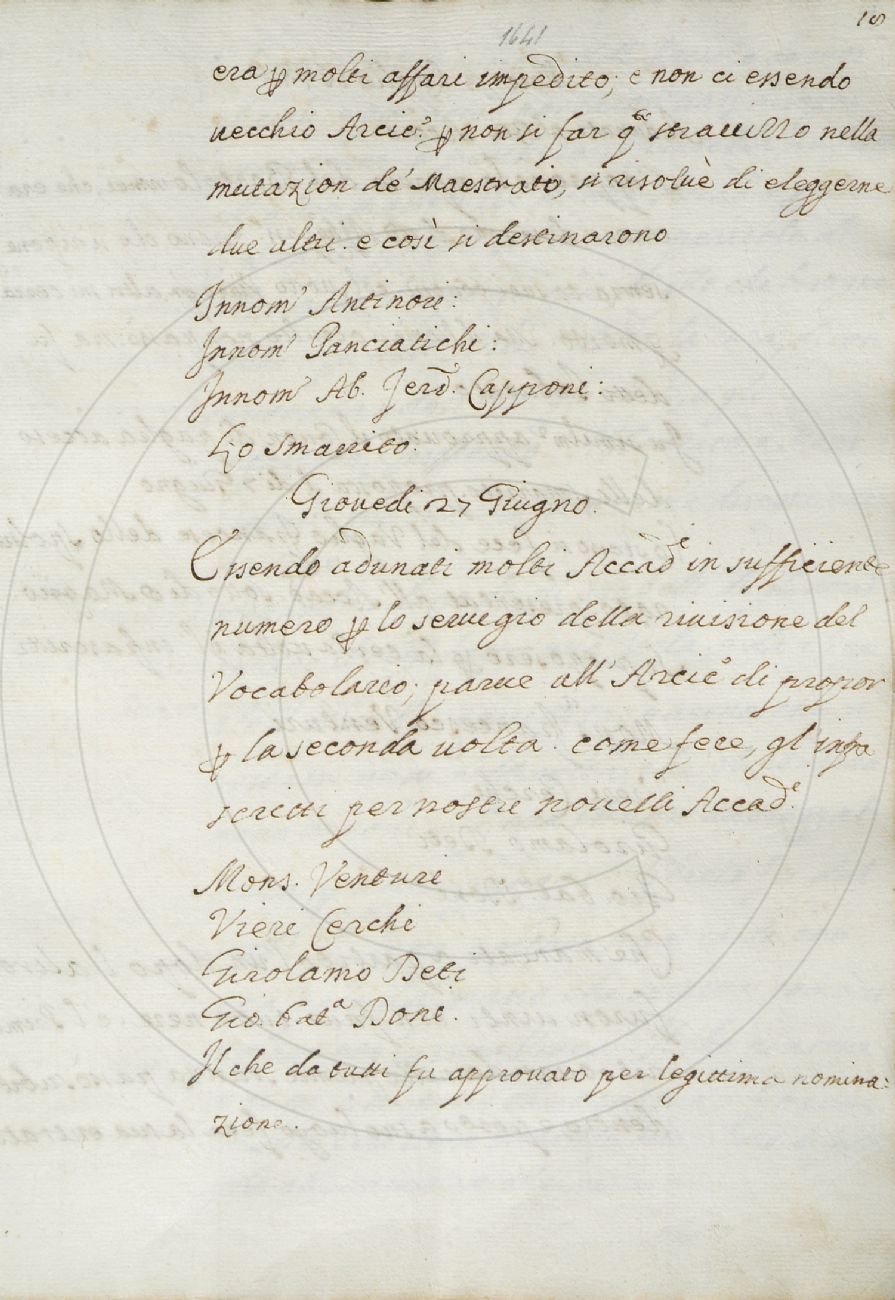 18
1641
era ꝑ molti affari impedito; e non ci essendo
vecchio Arcic.º ꝑ non si far q.sto stravizzo nella
mutazion de' Maestrato, si risolvè di eleggerne
due altri. e così si destinarono
Innom.º Antinori:
Innom.º Panciatichi:
Innom.º Ab. Ferd. Capponi:
Lo Smarrito.
Giovedi 27 Giugno.
Essendo adunati molti Accad.i in sufficiente
numero ꝑ lo servigio della rivisione del
Vocabolario; parve all' Arcic.º di propor
ꝑ la seconda volta. come fece, gl' infra
scritti per nostri novelli Accad.i
Mons. Venturi
Vieri Cerchi
Girolamo Deti
Gio. Bat.a Doni.
Il che da tutti fu approvato per legittima nomina:
zione.